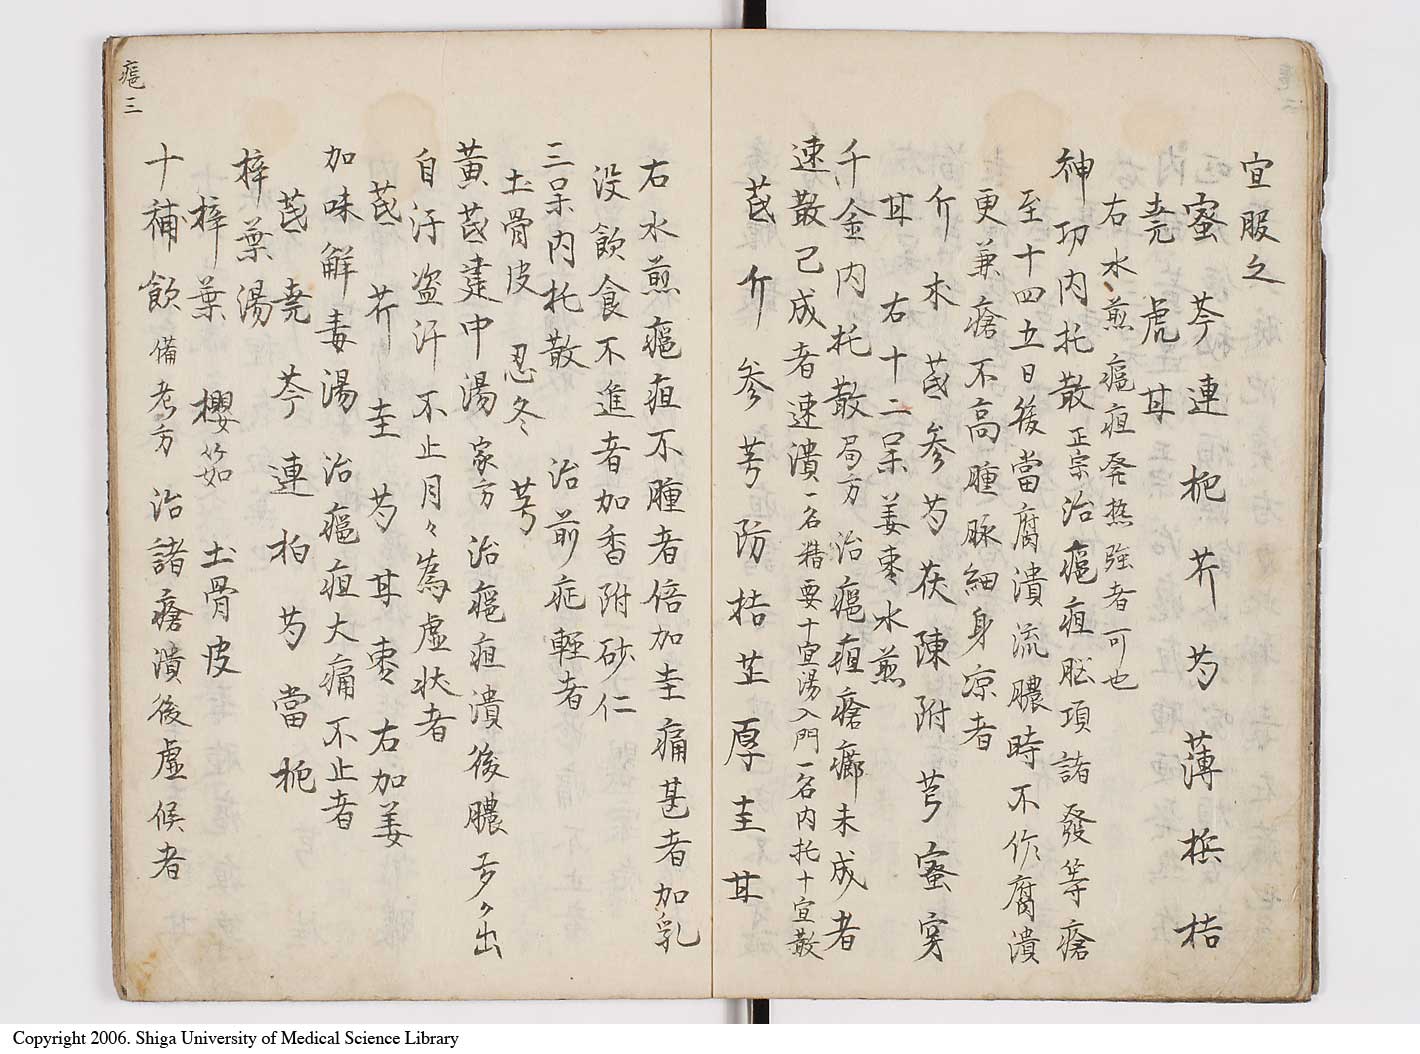 宜服之
蜜芩連梔芥芍薄梹桔
尭虎甘
右水煎癰疽発热強者可也
神功内托散 正宗 治癰疽脳項諸發等瘡
至十四五日後當腐潰流膿時不作腐潰
更兼瘡不高腫脉細身凉者
介木芪参芍茯陳附芎蜜穿
甘 右十二呆姜枣水煎
千金内托散 局方 治癰疽瘡癤未成者
速散已成者速潰 一名精要十宣湯入門一名内托十宣散
芪介参芎防桔芷厚圭甘
右水煎癰疽不腫者倍加圭痛甚者加乳
没飲食不進者加香附砂仁
三呆内托散 治前症輕者
土骨皮 忍冬 芎
黄芪建中湯 家方 治癰疽潰後膿多々出
自汗盗汗不止月々為虚状者
芪芥圭芍甘枣右加姜
加味解毒湯 治癰疽大痛不止者
芪尭芩連柏芍當梔
梓葉湯
梓葉 櫻筎 土骨皮
十補飲 備考方 治諸瘡潰後虚候者
癰三